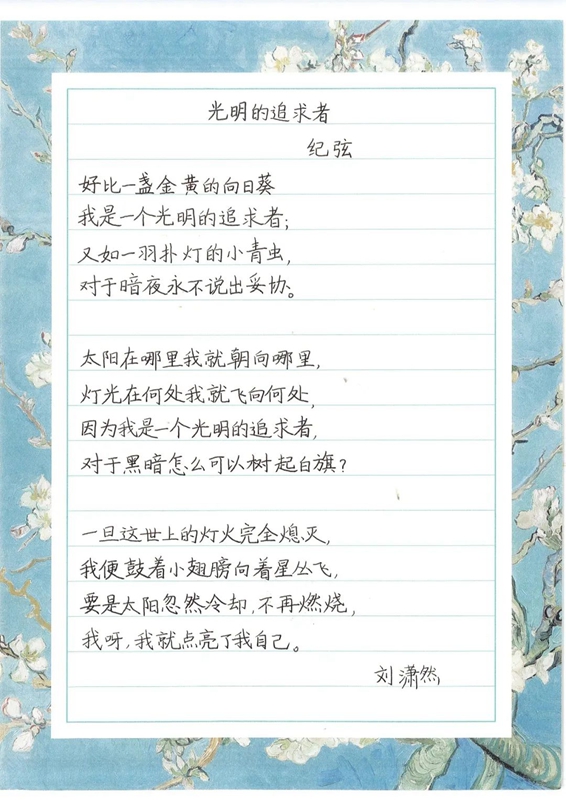 光明的追求者
纪弦
好比一盏金黄的向日葵
我是一个光明的追求者；
又如一羽扑灯的小青虫，
对于暗夜永不说出妥协。
太阳在哪里我就朝向哪里，
灯光在何处我就飞向何处，
因为我是一个光明的追求者，
对于黑暗怎么可以树起白旗？
一旦这世上的灯火完全熄灭，
我便鼓着小翅膀向着星丛飞，
要是太阳忽然冷却，不再燃烧，
我呀，我就点亮了我自己。
刘潇然